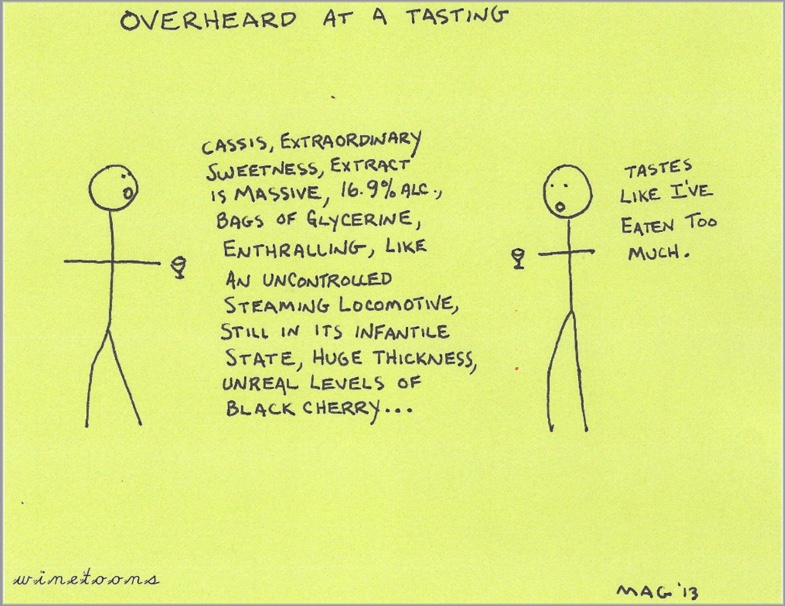 OVERHEARD AT A TASTING
CASSIS, EXTRAORDINARY
SWEETNESS, EXTRACT
IS MASSIVE, 16.9% ALC.,
BAGS OF GLYCERINE,
ENTHRALLING, LIKE
AN UNCONTROLLED
STEAMING LOCOMOTIVE,
STILL IN ITS INFANTILE
STATE, HUGE THICKNESS,
UNREAL LEVELS OF
BLACK CHERRY...
TASTES
LIKE I'VE
EATEN TOO
MUCH.
winetoons
MAG '13